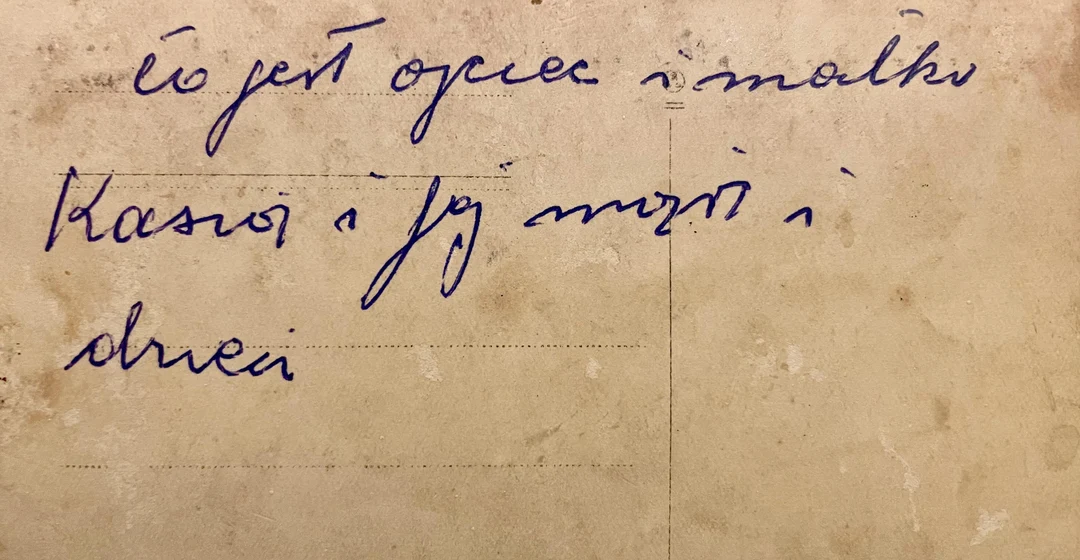 to jest ojciec i matka
Kasi i jej mąż i
dzieci